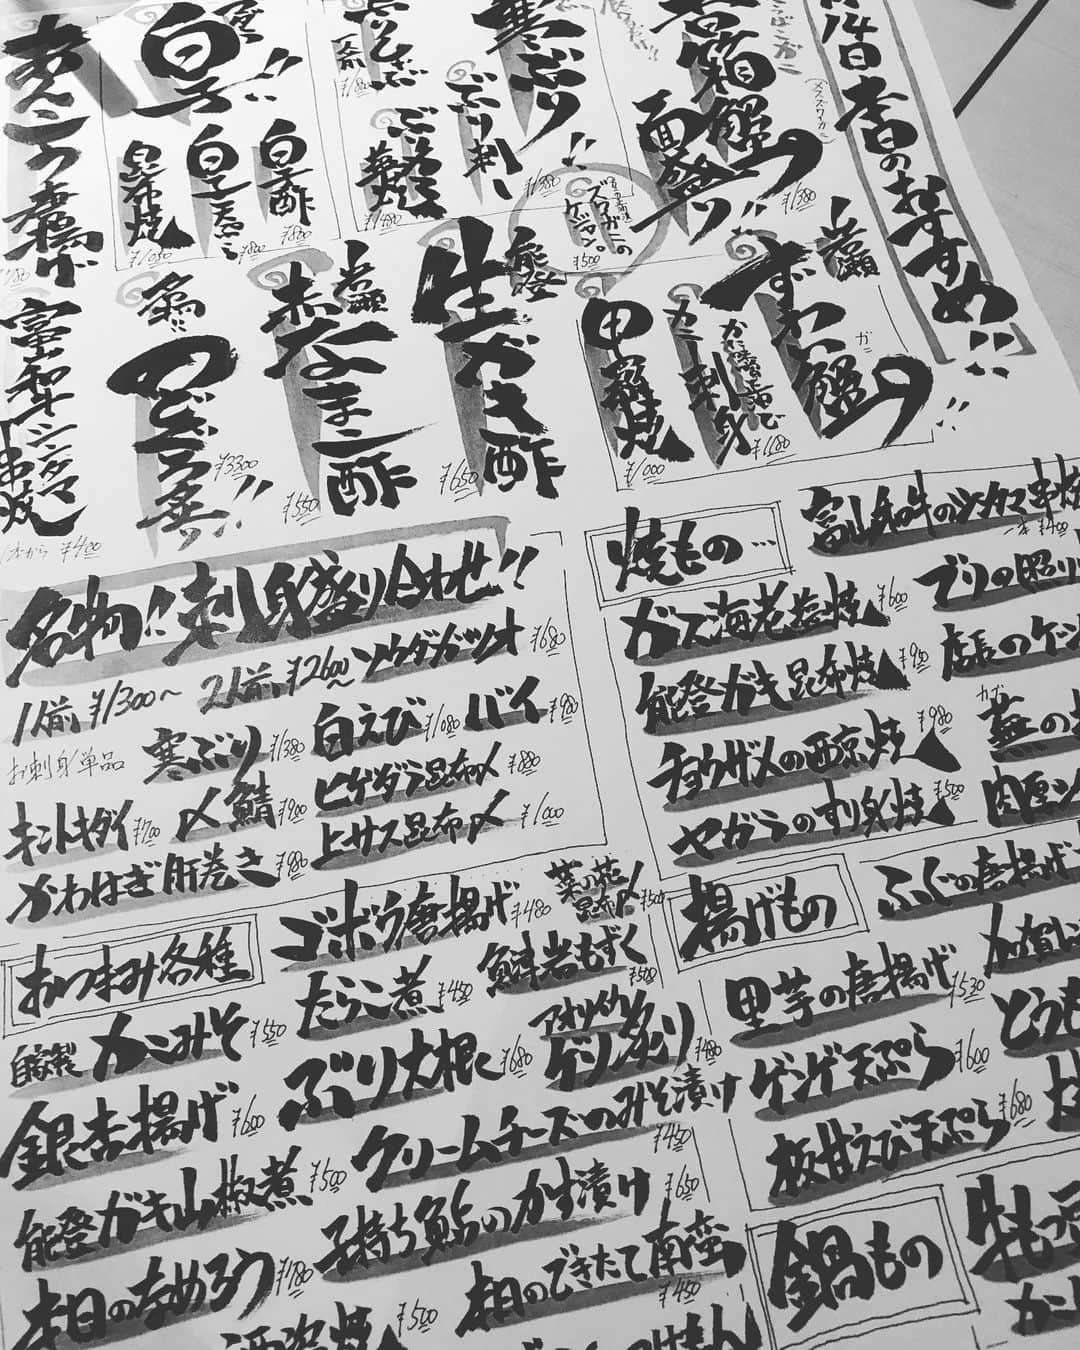 14日 本日のおすすめ!!
香箱蟹の
面盛り
¥1380
岩瀬
ずわい蟹の
カニ刺身
¥1680
甲羅焼
¥1000
ズワイガニの
¥500
寒ぶり
ぶり刺し
¥1380
ぶりカマ
¥1480
白子
白子酢
¥800
白子天ぷら
¥800
昆布焼
¥1050
能登
生がき酢
¥650
岩瀬
赤なまこ酢
¥550
のどぐろ
¥3300
あんこう唐揚げ
富山和牛シンタマ
串焼
1本から ¥400
名物!!刺身盛り合わせ!!
1人前 ¥1300〜 2人前 ¥2600〜
お刺身単品
ソウダガツオ ¥680
寒ぶり ¥1380
白えび ¥1080
バイ ¥980
キントキダイ ¥700
〆鯖 ¥900
ヒゲダラ昆布〆 ¥880
かわはぎ肝巻き ¥980
上サス昆布〆 ¥1000
焼もの…
富山和牛のシンタマ串焼
一本 ¥400
ガス海老塩焼 ¥600
ブリの照り
能登ガキ昆布焼 ¥950
店長のゲン
チョウザメの西京焼 ¥980
蕪の
ヤガラのすり身焼 ¥500
肉厚シ
おつまみ各種
ゴボウ唐揚げ ¥480
菜の花
昆布〆 ¥500
自家製 カニみそ ¥550
たらこ煮 ¥450
岩もずく ¥500
銀杏揚げ ¥600
ぶり大根 ¥680
アオリイカ
ゲソ炙り ¥480
クリームチーズのみそ漬け ¥450
能登ガキ山椒煮 ¥500
子持ち鮎のカス漬け ¥650
本日のなめろう ¥780
本日のできたて南蛮 ¥450
酒盗焼 ¥500
揚げもの
ふぐの唐揚げ
里芋の唐揚げ ¥530
ゲンゲ天ぷら ¥600
とうも
板甘えび天ぷら ¥680
鍋もの
牛もつ